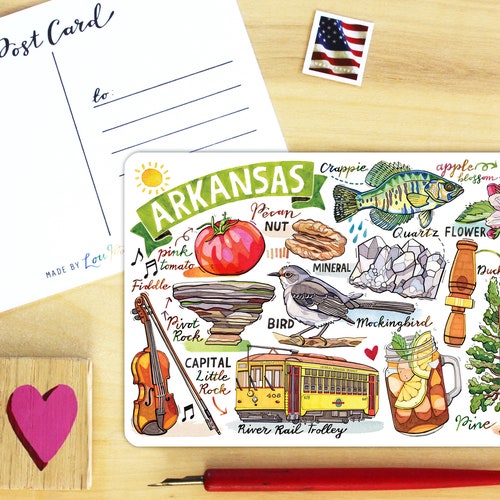 Post Card
to:
MADE BY
ARKANSAS
Crappie
apple
blossom
Pecan
NUT
pink
tomato
Quartz
FLOWER
MINERAL
Fiddle
Pivot
Rock
BIRD
Mockingbird
CAPITAL
Little
Rock
406
River Rail Trolley
Pine